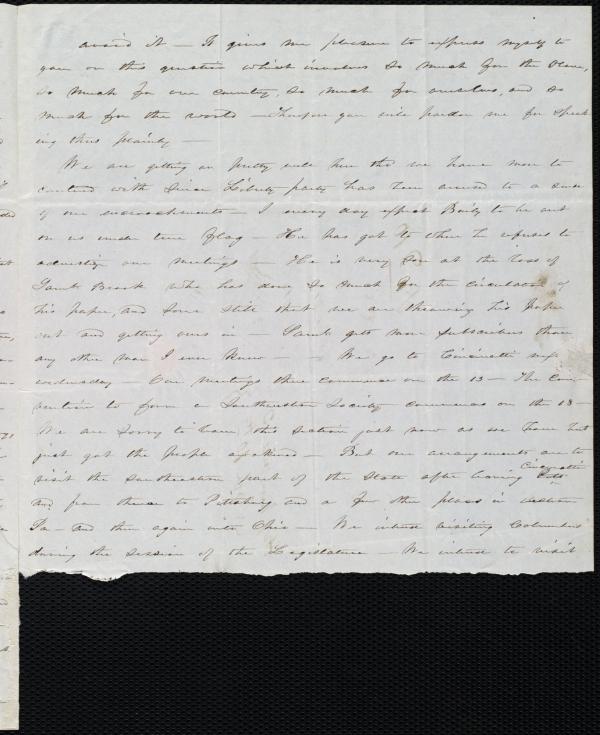 avoid it — It gives me pleasure to express myself to
you on this question which involves so much for the slave,
so much for our country, so much for ourselves, and so
much for the world — Therefore you will pardon me for speak
ing thus plainly —
We are getting on pretty well here tho we have more to
contend with since Liberty party has been aroused to a sense
of our encroachments — I every day expect Baily to be out
on us under true flag — He has got to where he refuses to
advertise our meetings — He is very sore at the loss of
Saml Brooke who has done so much for the circulation of
his paper, and sore still that we are throwing his paper
out and getting ours in — Saml gets more subscribers than
any other man I ever knew — We go to Cincinatti next
wednesday — Our meetings there commence on the 13 — The Con
vention to form a Southwestern Society commences on the 18 —
We are sorry to leave this section just now as we have but
just got the people awakened — But our arrangements are to
visit the southeastern part of the State after leaving Cincinatti
and from thence to Pittsburg and a few other places in western
Pa — and then again into Ohio — We intend visiting Columbus
during the session of the Legislature — We intend to visit